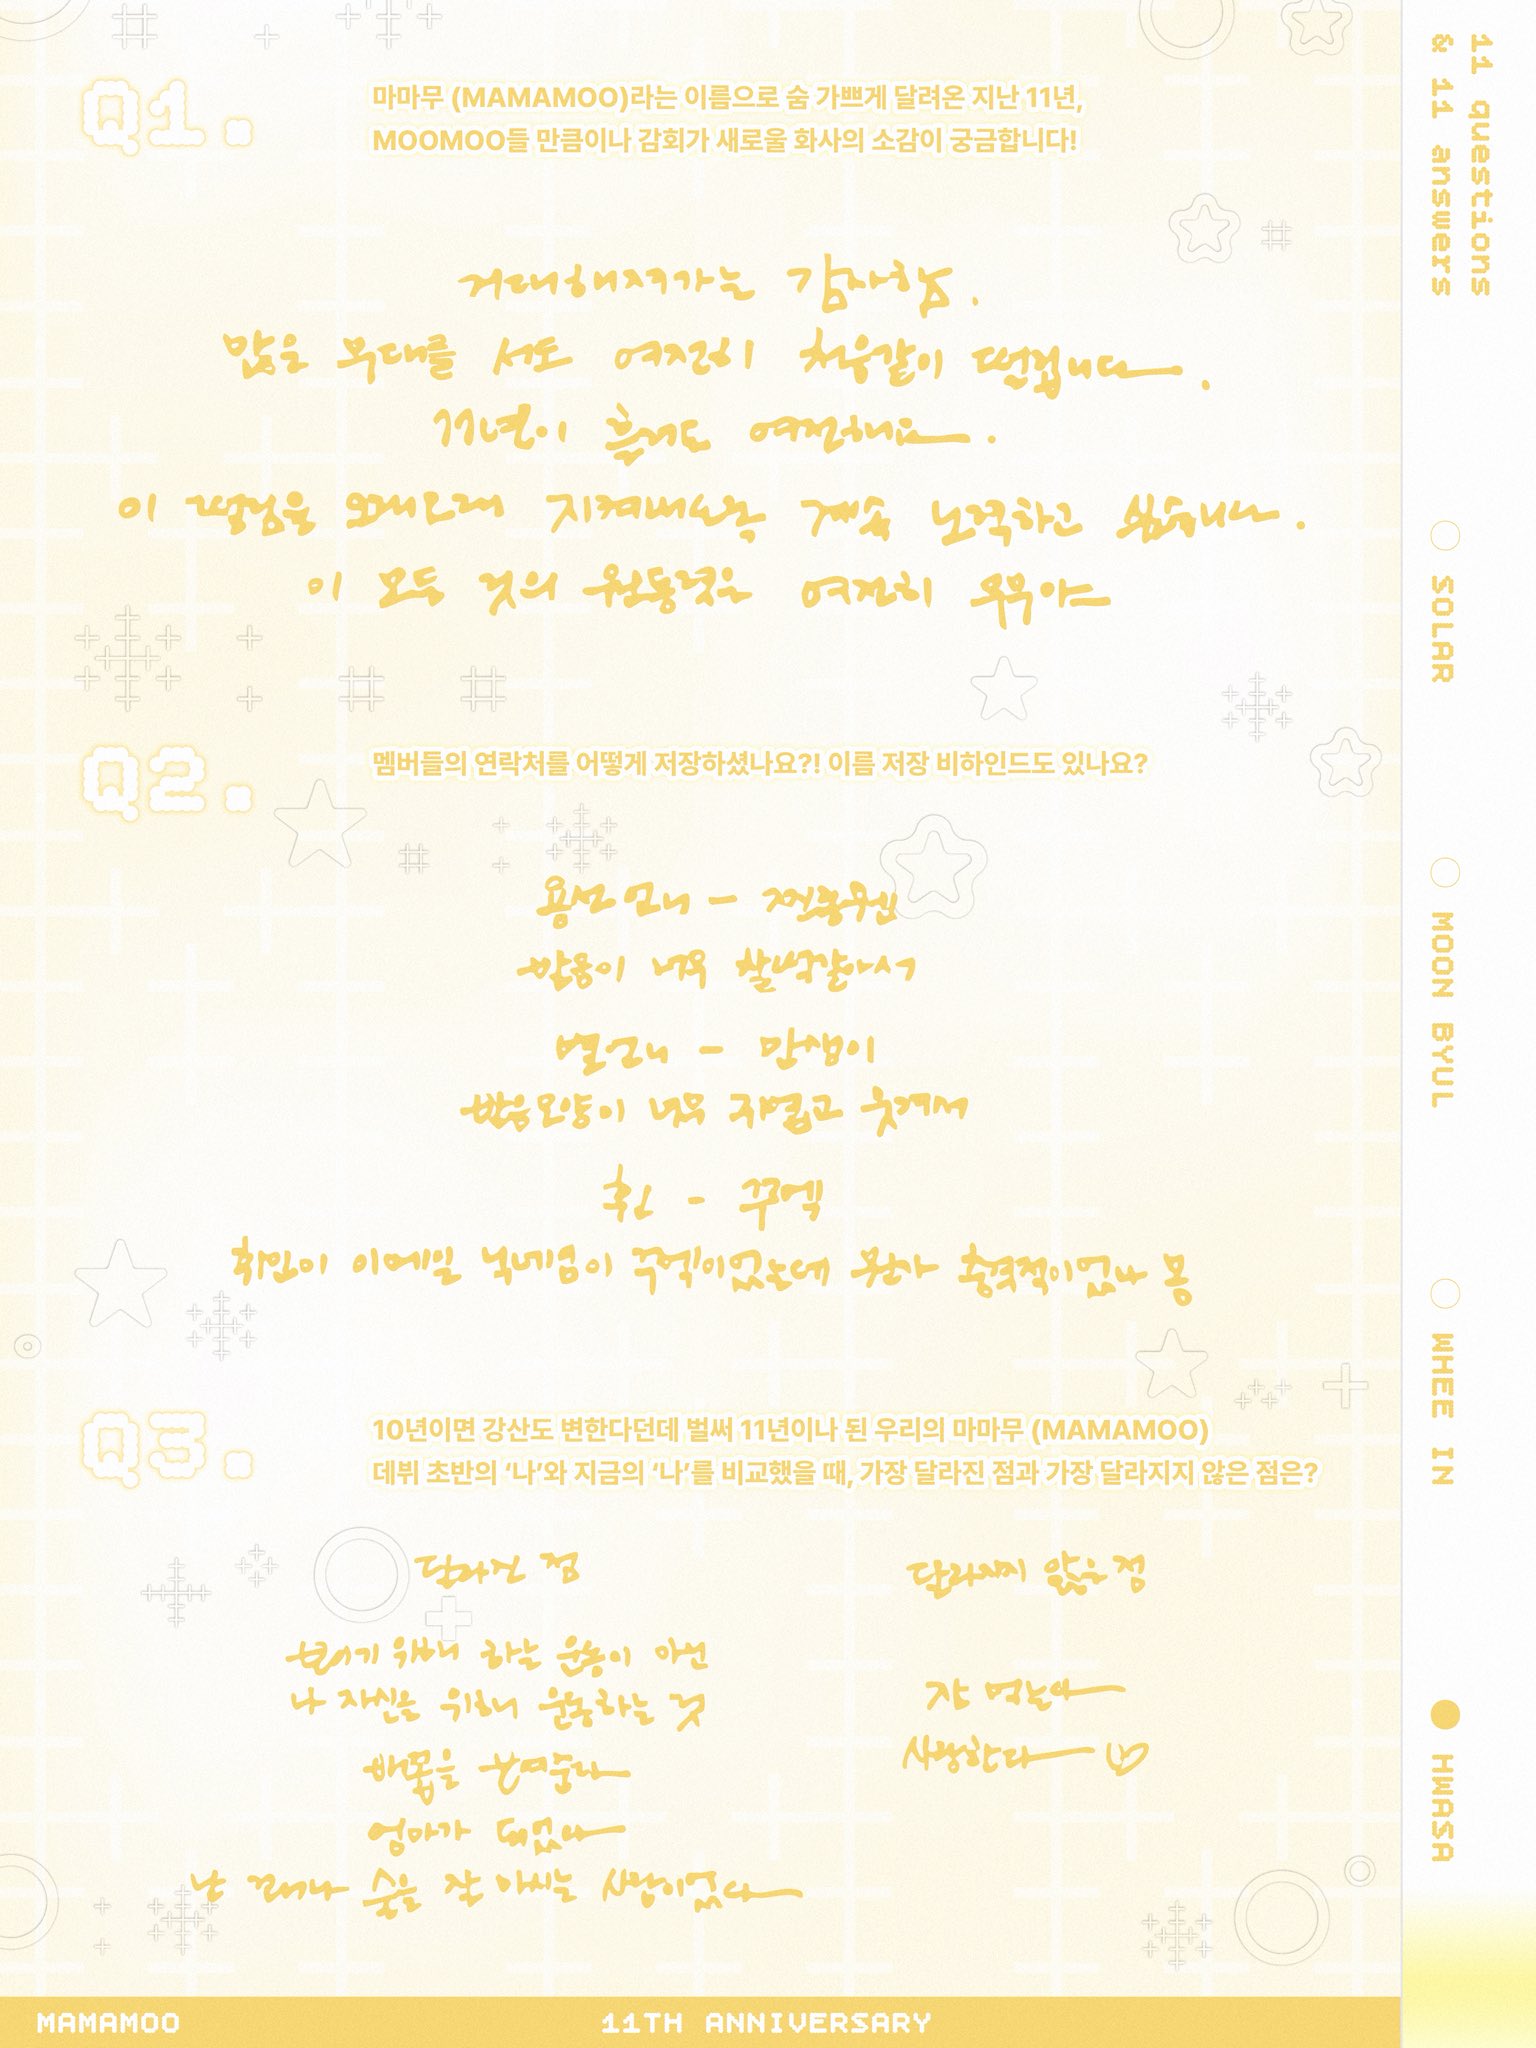 Q1.
마마무 (MAMAMOO)라는 이름으로 숨 가쁘게 달려온 지난 11년,
MOOMOO들 만큼이나 감회가 새로울 화사의 소감이 궁금합니다!
거대해져가는 감사함.
많은 무대를 서도 여전히 처음같이 떨립니다.
11년이 흘러도 여전해요.
이 떨림을 오래오래 지켜내도록 계속 노력하고 싶습니다.
이 모든 것의 원동력은 여전히 무무야
Q2.
멤버들의 연락처를 어떻게 저장하셨나요?! 이름 저장 비하인드도 있나요?
용선언니 -
발음이 너무 찰떡같아서
별언니 -
발음모양이 너무 귀엽고 웃겨서
휜 - 꾸엑
휘인이 이메일 닉네임이 꾸엑이었는데 뭔가 충격적이었나 봄
Q3.
10년이면 강산도 변한다던데 벌써 11년이나 된 우리의 마마무 (MAMAMOO)
데뷔 초반의 ‘나’와 지금의 ‘나’를 비교했을 때, 가장 달라진 점과 가장 달라지지 않은 점은?
달라진 점
빼기 위해 하는 운동이 아닌
나 자신을 위해 운동하는 것
배꼽을 보여준다
엄마가 되었다
난 술을 잘 마시는 사람이었다
달라지지 않은 점
잘 먹는다
사랑한다 ♡
MAMAMOO
11TH ANNIVERSARY
11 questions
& 11 answers
SOLAR
MOON BYUL
WHEE IN
HWASA